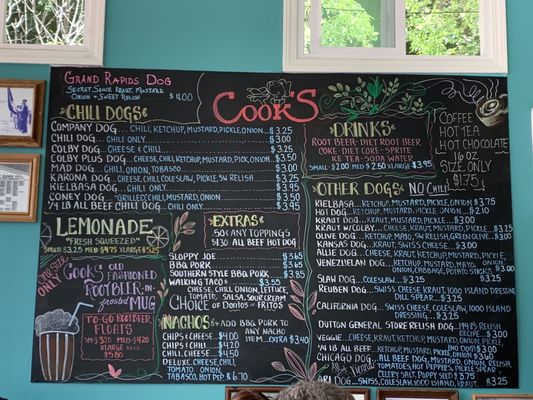 GRAND RAPIDS DOG
SECRET SAUCE, KRAUT, MUSTARD
ONION & SWEET RELISH $4.00
COOK'S
CHILI DOGS
COMPANY DOG CHILI, KETCHUP, MUSTARD, PICKLE, ONION $3.25
CHILI DOG CHILI ONLY $3.00
COLBY DOG CHEESE & CHILI $3.25
COLBY PLUS DOG CHEESE, CHILI, KETCHUP, MUSTARD, PICK, ONION $3.50
MAD DOG CHILI, ONION, TOBASCO $3.00
KARONA DOG CHILI, CHEESE, COLESLAW, PICKLE, SW RELISH $3.25
KIELBASA DOG CHILI ONLY $3.95
CONEY DOG "GRILLED" CHILI, MUSTARD, ONION $3.25
1/4 LB ALL BEEF CHILI DOG CHILI ONLY $3.95
DRINKS
ROOT BEER - DIET ROOT BEER
COKE - DIET COKE - SPRITE
ICE TEA - SODA WATER
SMALL - $2.00 MED $2.50 XLARGE $3.95
COFFEE
HOT TEA
HOT CHOCOLATE
16 OZ
SIZE ONLY
$1.75
LEMONADE
"FRESH SQUEEZED"
SMALL $3.25 MED $4.75 XLARGE $5.25
COOK'S OLD
FASHIONED
ROOT BEER
IN A
FROSTED
MUG
TO-GO ROOT BEER
FLOATS
XLARGE
$5.80
EXTRAS
50¢ ANY TOPPINGS
$1.30 ALL BEEF HOT DOG
SLOPPY JOE $3.65
BBQ PORK $3.65
SOUTHERN STYLE BBQ PORK $3.95
WALKING TACO
CHEESE, CHILI, ONION, LETTUCE
TOMATO, SALSA, SOUR CREAM
CHOICE OF DORITOS OR FRITOS
NACHOS
ADD BBQ PORK
TO ANY NACHO
ITEM EXTRA $3.40
CHIPS & CHEESE $4.00
CHIPS & CHILI $4.40
CHILI, CHEESE $4.50
DELUXE CHEESE, CHILI,
TOMATO, ONION,
TABASCO, HOT PEP $6.70
OTHER DOGS NO CHILI
KIELBASA KETCHUP, MUSTARD, PICKLE, ONION $3.75
HOT DOG KETCHUP, MUSTARD, PICKLE, ONION $2.10
KRAUT DOG KRAUT, MUSTARD $3.00
KRAUT W/COLBY CHEESE, KRAUT, MUSTARD $3.25
OLIVE DOG KETCHUP, MAYO, SW RELISH, GREEN OLIVE $3.00
KANSAS DOG KRAUT, SWISS CHEESE $3.00
ALLIE DOG CHEESE, KETCHUP, MUSTARD, PICKLE
VENEZUELAN DOG KETCHUP, MUSTARD, MAYO,
ONION, CABBAGE, POTATO STICKS $3.00
SLAW DOG COLESLAW $3.25
REUBEN DOG KRAUT, SWISS CHEESE, 1000 ISLAND DRESSING
DILL SPEAR $3.25
CALIFORNIA DOG SWISS CHEESE, COLESLAW, 1000 ISLAND
DRESSING $3.25
DUTTON GENERAL STORE RELISH DOG
RECIPE $3.00
VEGGIE CHEESE, KRAUT, KETCHUP, MUSTARD, ONION, PICKLE
1/4 LB ALL BEEF KETCHUP, MUSTARD, PICKLE, ONION
CHICAGO DOG ALL BEEF DOG, MUSTARD, ONION, RELISH,
TOMATOES, HOT PEPPERS, PICKLE SPEAR,
CELERY SALT, POPPY SEED $3.75
DOG SWISS, COLESLAW, 1000 ISLAND, KRAUT $3.25